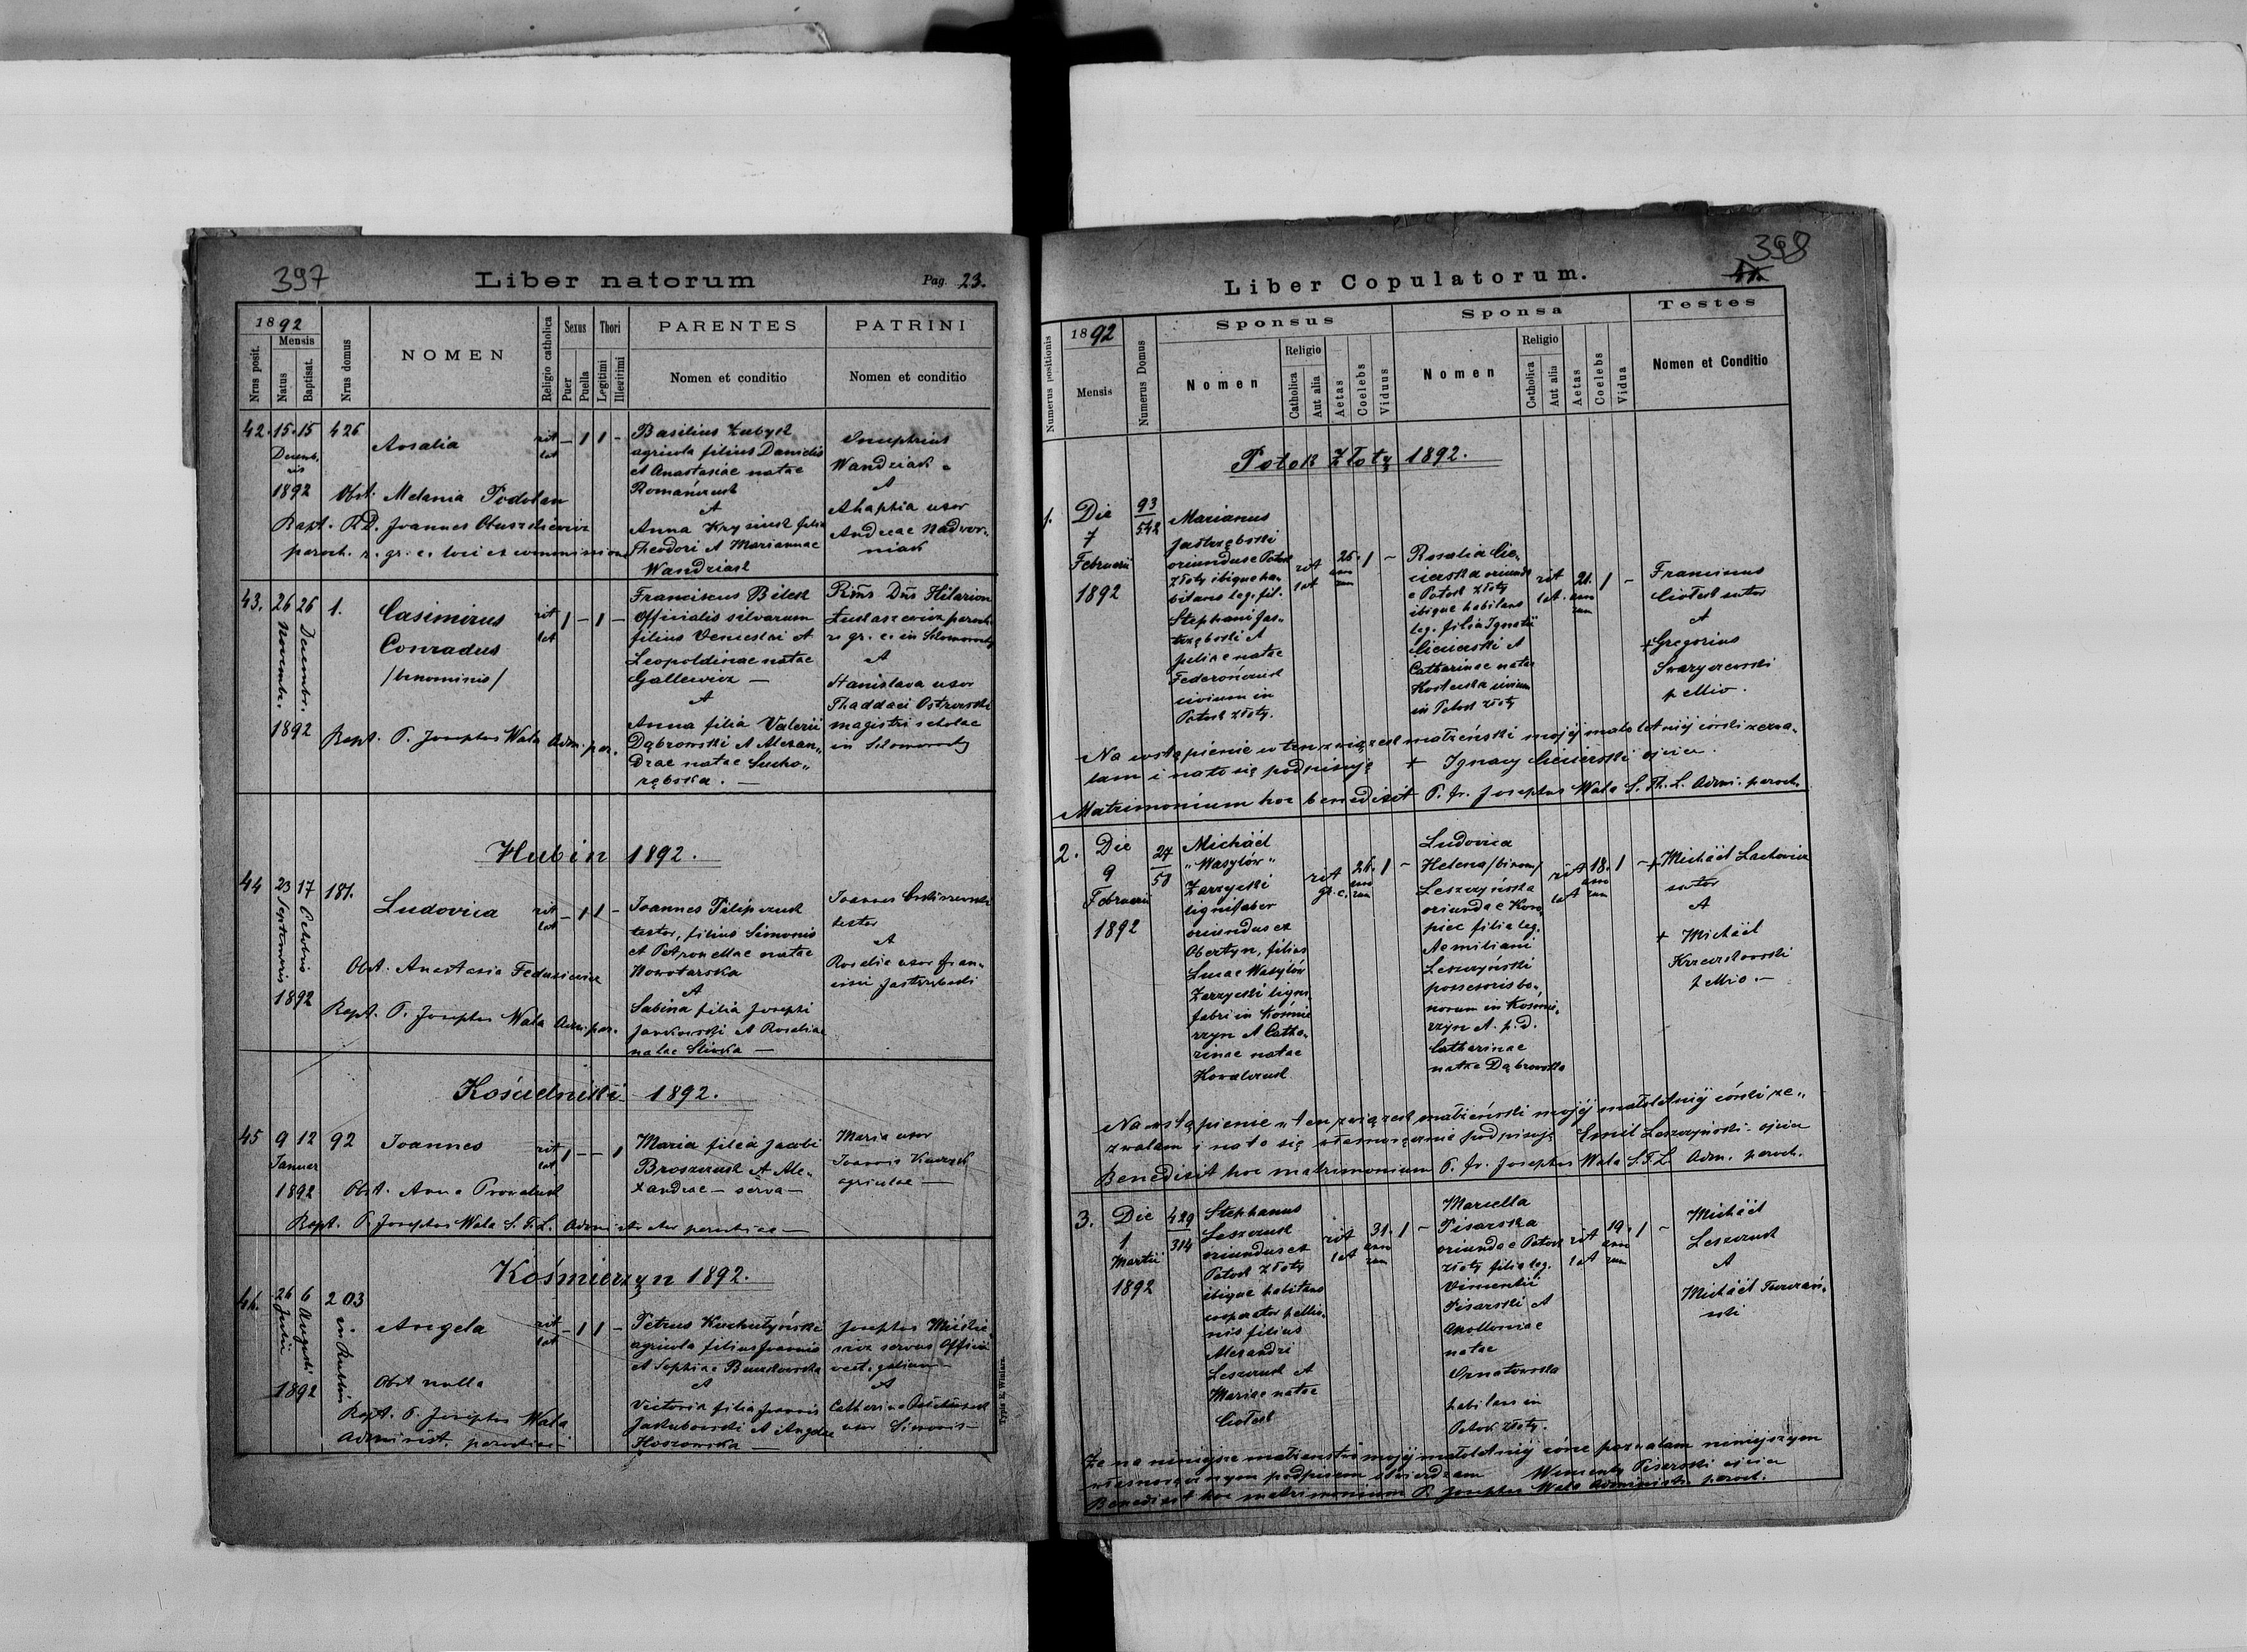 397
Liber natorum
Pag. 23.
1892
Mensis
Nrus posit.
Natus
Baptisat.
Nrus domus
NOMEN
Religio catholica
Sexus
Puer
Puella
Thori
Legitimi
Illegitimi
PARENTES
Nomen et conditio
PATRINI
Nomen et conditio
42. 15. 15 426
Decemb.
1892
Rosalia
rit lat – 1 1 –
Basilius
agricola filius Danielis
et Anastasiae natae
Romańczuk
et
Anna filia
Theodori et Mariannae
Wandziak
Wandziak
et
Ahaphia uxor
Andreae Nadwor-
niak
Obst. Melania Podolan
Bapt. RD. Joannes
paroch. r. gr. c. loci ex commissione
43. 26 26 1.
Novembr. Decembr.
1892
Casimirus
Conradus
/binominis/
rit lat 1 – 1 –
Franciscus Bilek
Officialis silvarum
filius Venceslai et
Leopoldinae natae
Gallewicz —
et
Anna filia Valerii
Dąbrowski et Alexan„
drae natae Sucho„
rębska. —
Rms Dns Hilarion
paroch.
r. gr. c. in
et
Stanislava uxor
Thaddaei Ostrowski
magistri scholae
in
Bapt. P. Josephus Wala Adm. par.
Hubin 1892.
44 23 17 181.
Septembris Octobris
1892
Ludovica
rit lat – 1 1 –
Joannes Filipczuk
textor, filius Simonis
et Petronellae natae
Nowotarska
et
Sabina filia Josephi
Jankowski et Rosaliae
natae Sliwka —
Joannes
textor
et
Rosalia uxor Fran-
cisci Jastrzębski
Obst. Anastasia
Bapt. P. Josephus Wala Adm. par.
Kościelniki 1892.
45 9 12 92
Januar
1892
Joannes
rit lat 1 – – 1
Maria filia Jacobi
Broszczuk et Ale-
xandrae — serva —
Maria uxor
Joannis
agricolae —
Obst. Anna
Bapt. P. Josephus Wala S.T.L. Administrator parochiae —
Kośmierzyn 1892.
46. 26 6 203
Julii Augusti in Rublin
1892
Angela
rit lat – 1 1 –
Petrus
agricola filius Joannis
et Sophiae
et
Victoria filia Joannis
Jakubowski et Angelae
Hoszowska —
Josephus
servus Officii
vectigalium —
et
Catharina
uxor Simonis —
Obst nulla
Bapt. P. Josephus Wala
Administ. parochiae —
Typis E. Winiarz
398
Liber Copulatorum.
Numerus positionis
1892
Mensis
Numerus Domus
Sponsus
Nomen
Religio
Catholica
Aut alia
Aetas
Coelebs
Viduus
Sponsa
Nomen
Religio
Catholica
Aut alia
Aetas
Coelebs
Vidua
Testes
Nomen et Conditio
Potok Złoty 1892.
1. Die
7
Februarii
1892
93
542
Marianus
Jastrzębski
oriundus e Potok
złoty ibique ha-
bitans leg. fil.
Stephani Jas-
trzębski et
Juliae natae
Federończuk
civium in
Potok złoty.
rit lat 26. annorum 1 –
Rosalia Cie-
cierska oriunda
e Potok złoty
ibique habitans
leg. filia Ignatii
Ciecierski et
Catharinae natae
Kostecka civium
in Potok złoty
rit lat. 21. annorum 1 –
Franciscus
Ciołek sutor
et
+ Gregorius
pellio.
Na wstąpienie w ten związek małżeński mojéj małoletniéj córki zezwa-
lam i na to się podpisuję + Ignacy Ciecierski ojciec.
Matrimonium hoc benedixit P. fr. Josephus Wala S. Th. L. Admi. paroch.
2. Die
9
Februarii
1892
27
50
Michaël
„Wasylów„
Zarzycki
lignifaber
oriundus ex
Obertyn, filius
Lucae Wasylów
Zarzycki ligni-
fabri in Kośmie
rzyn et Catha-
rinae natae
Kowalczuk
rit gr. c. 26. annorum 1 –
Ludovica
Helena /binom/
Leszczyńska
oriunda e Koro
piec filia leg.
Aemiliani
Leszczyński
possessoris bo-
norum in Kośmie-
rzyn et p. d.
Catharinae
natae Dąbrowska
rit lat 18. annorum 1 –
+ Michaël Lachowicz
sutor
et
+ Michaël
Krzeczkowski
pellio. —
Na wstąpienie w ten związek małżeński mojéj małoletniéj córki ze„
zwalam i na to się własnoręcznie podpisuję Emil Leszczyński ojciec
Benedixit hoc matrimonium P. fr. Josephus Wala S.T.L. Adm. paroch.
3. Die
1
Martii
1892
429
314
Stephanus
Leszczuk
oriundus ex
Potok złoty
ibique habitans
pellio-
nis filius
Alexandri
Leszczuk et
Mariae natae
Ciołek
rit lat 31. annorum 1 –
Marcella
Pisarska
oriunda e Potok
złoty filia leg.
Vincentii
Pisarski et
Apolloniae
natae
Ornatowska
habitans in
Potok złoty.
rit lat 19. annorum 1 –
Michaël
Leszczuk
et
Michaël Turczań-
ski
Że na niniejsze małżeństwo mojéj małoletniéj córce pozwalam niniejszym
własnoręcznym podpisem stwierdzam Wincenty Pisarski ojciec
Benedixit hoc matrimonium P. Josephus Wala Administr. paroch.